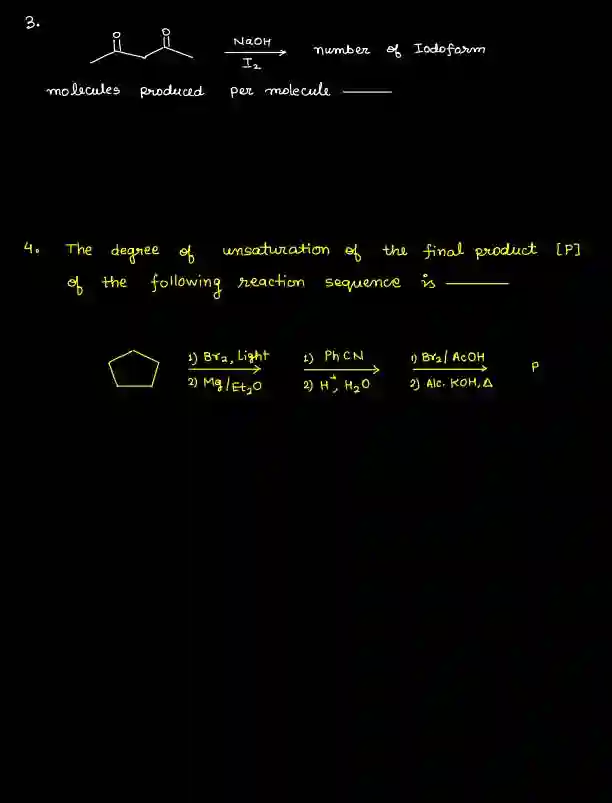 3.
O O
NaOH
I₂
number of Iodoform
molecules produced per molecule ———
4. The degree of unsaturation of the final product [P]
of the following reaction sequence is ———
1) Br₂, Light
2) Mg/Et₂O
1) PhCN
2) H⁺, H₂O
1) Br₂/AcOH
2) Alc. KOH, Δ
P